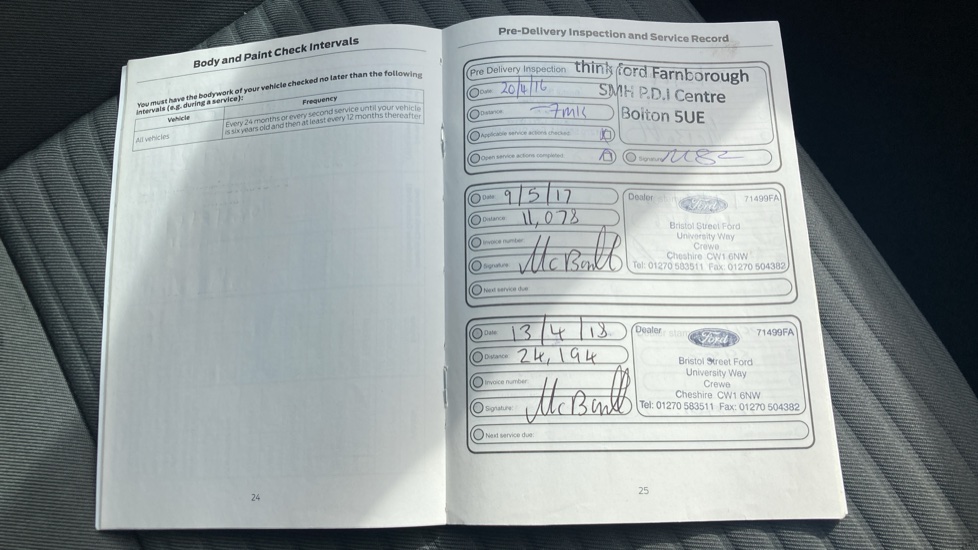 Body and Paint Check Intervals
You must have the bodywork of your vehicle checked no later than the following
intervals (e.g. during a service):
Vehicle
Frequency
All vehicles
Every 24 months or every second service until your vehicle
is six years old and then at least every 12 months thereafter
24
Pre-Delivery Inspection and Service Record
Pre Delivery Inspection
think ford Farnborough
SMH P.D.I Centre
Bolton 5UE
Date: 20/4/16
Distance: 7mls
Applicable service actions checked:
Open service actions completed:
Signature:
Date: 9/5/17
Distance: 11,078
Invoice number:
Signature:
Next service due:
Dealer
Ford
71499FA
Bristol Street Ford
University Way
Crewe
Cheshire CW1 6NW
Tel: 01270 583511 Fax: 01270 504382
Date: 13/4/18
Distance: 24,194
Invoice number:
Signature:
Next service due:
Dealer
Ford
71499FA
Bristol Street Ford
University Way
Crewe
Cheshire CW1 6NW
Tel: 01270 583511 Fax: 01270 504382
25